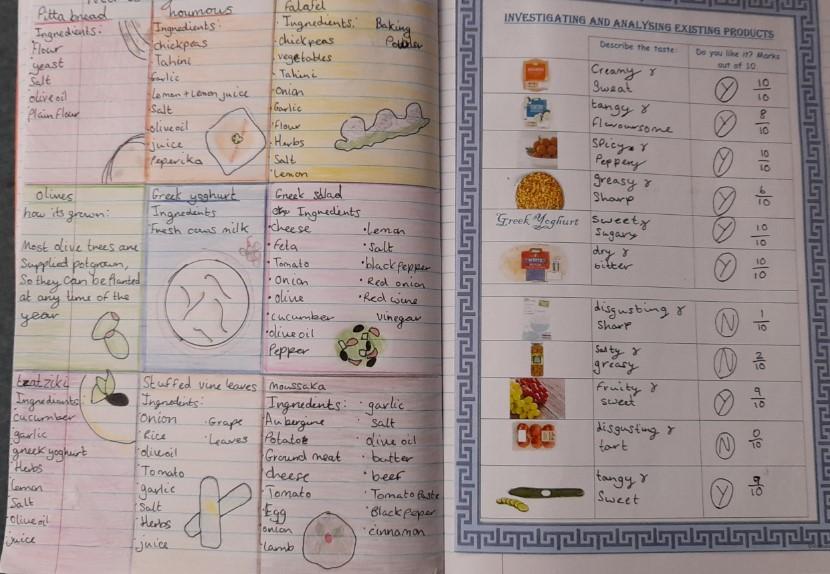 Pitta bread
Ingredients:
Flour
yeast
Salt
olive oil
Plain flour
houmous
Ingredients:
chickpeas
Tahini
Garlic
Lemon + Lemon juice
Salt
olive oil
juice
Peperika
falafel
Ingredients:
Baking
Powder
chickpeas
vegetables
Tahini
Onion
Garlic
flour
Herbs
Salt
Lemon
Olives
how its grown:
Most olive trees are
Supplied potgrown,
So they can be planted
at any time of the
year
Greek yoghurt
Ingredents
Fresh cows milk
Greek salad
Ingredents
cheese
feta
Tomato
onion
olive
cucumber
olive oil
Pepper
Lemon
Salt
black pepper
Red onion
Red wine
vinegar
tzatziki
Ingredients:
cucumber
garlic
greek yoghurt
Herbs
Lemon
Salt
Olive oil
juice
Stuffed vine leaves
Ingredents:
Onion
Rice
olive oil
Tomato
garlic
Salt
Herbs
juice
Grape
Leaves
moussaka
Ingredents:
Aubergine
Potatoe
Ground meat
cheese
Tomato
Egg
onion
Lamb
garlic
salt
olive oil
butter
beef
Tomato Paste
Black Peper
cinnamon
INVESTIGATING AND ANALYSING EXISTING PRODUCTS
Describe the taste:
Do you like it? Marks
out of 10
Creamy &
Sweat
Y 10/10
tangy &
flavoursome
Y 8/10
Spicy &
Peppery
Y 10/10
greasy &
Sharp
Y 6/10
Greek Yoghurt
Sweet &
Sugary
Y 10/10
dry &
bitter
Y 10/10
disgusting &
Sharp
N 1/10
Salty &
greasy
N 2/10
fruity &
sweet
Y 9/10
disgusting &
tart
N 0/10
tangy &
Sweet
Y 9/10